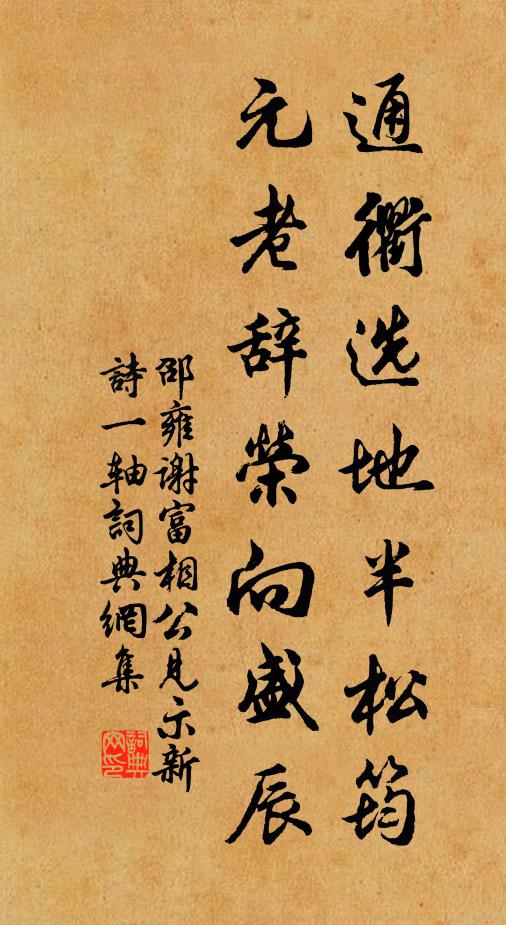 通衢选地半松筠
元老辞榮向盛辰
邵雍谢富相公見示新
詩一轴詞典網集
詞典網印